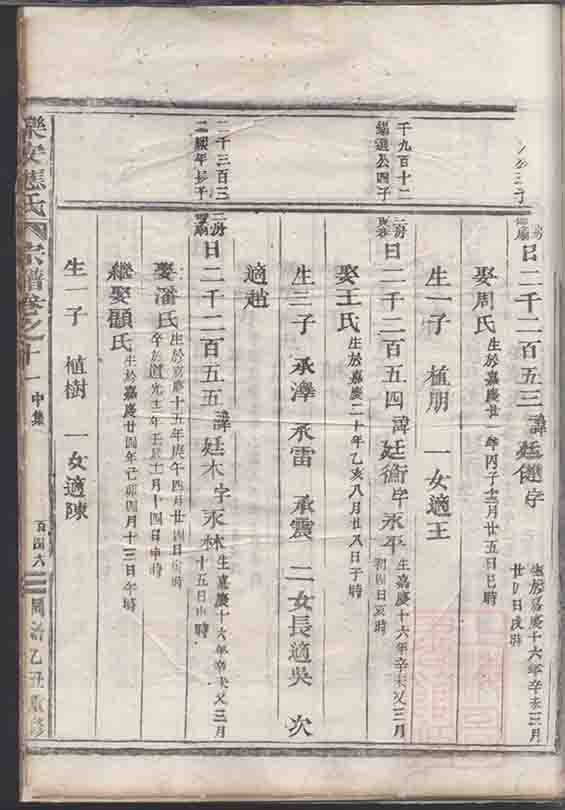 公三子
日二千二百五三 諱廷 字 生於嘉慶十六年辛未三月廿 日戌時
娶周氏 生於嘉慶廿一年丙子 月廿五日巳時
生一子 植朋 一女適王
千九百十二
公四子
二房 日二千二百五四 諱廷衛字永平 生嘉慶十六年辛未又三月初四日亥時
娶王氏 生於嘉慶二十年乙亥八月廿八日子時
生三子 承澤 承雷 承震 二女長適吳 次
適趙
二千三百三
年長子
二房 日二千二百五五 諱廷木字永林 生嘉慶十六年辛未又三月十五日 時
娶潘氏 生於嘉慶十五年庚午四月廿四日 時 卒於道光 年壬 十月十四日申時
繼娶顧氏 生於嘉慶廿四年己卯四月十三日午時
生一子 植樹 一女適陳
樂安 氏宗譜卷之十一 中集 百四六 乙丑重修